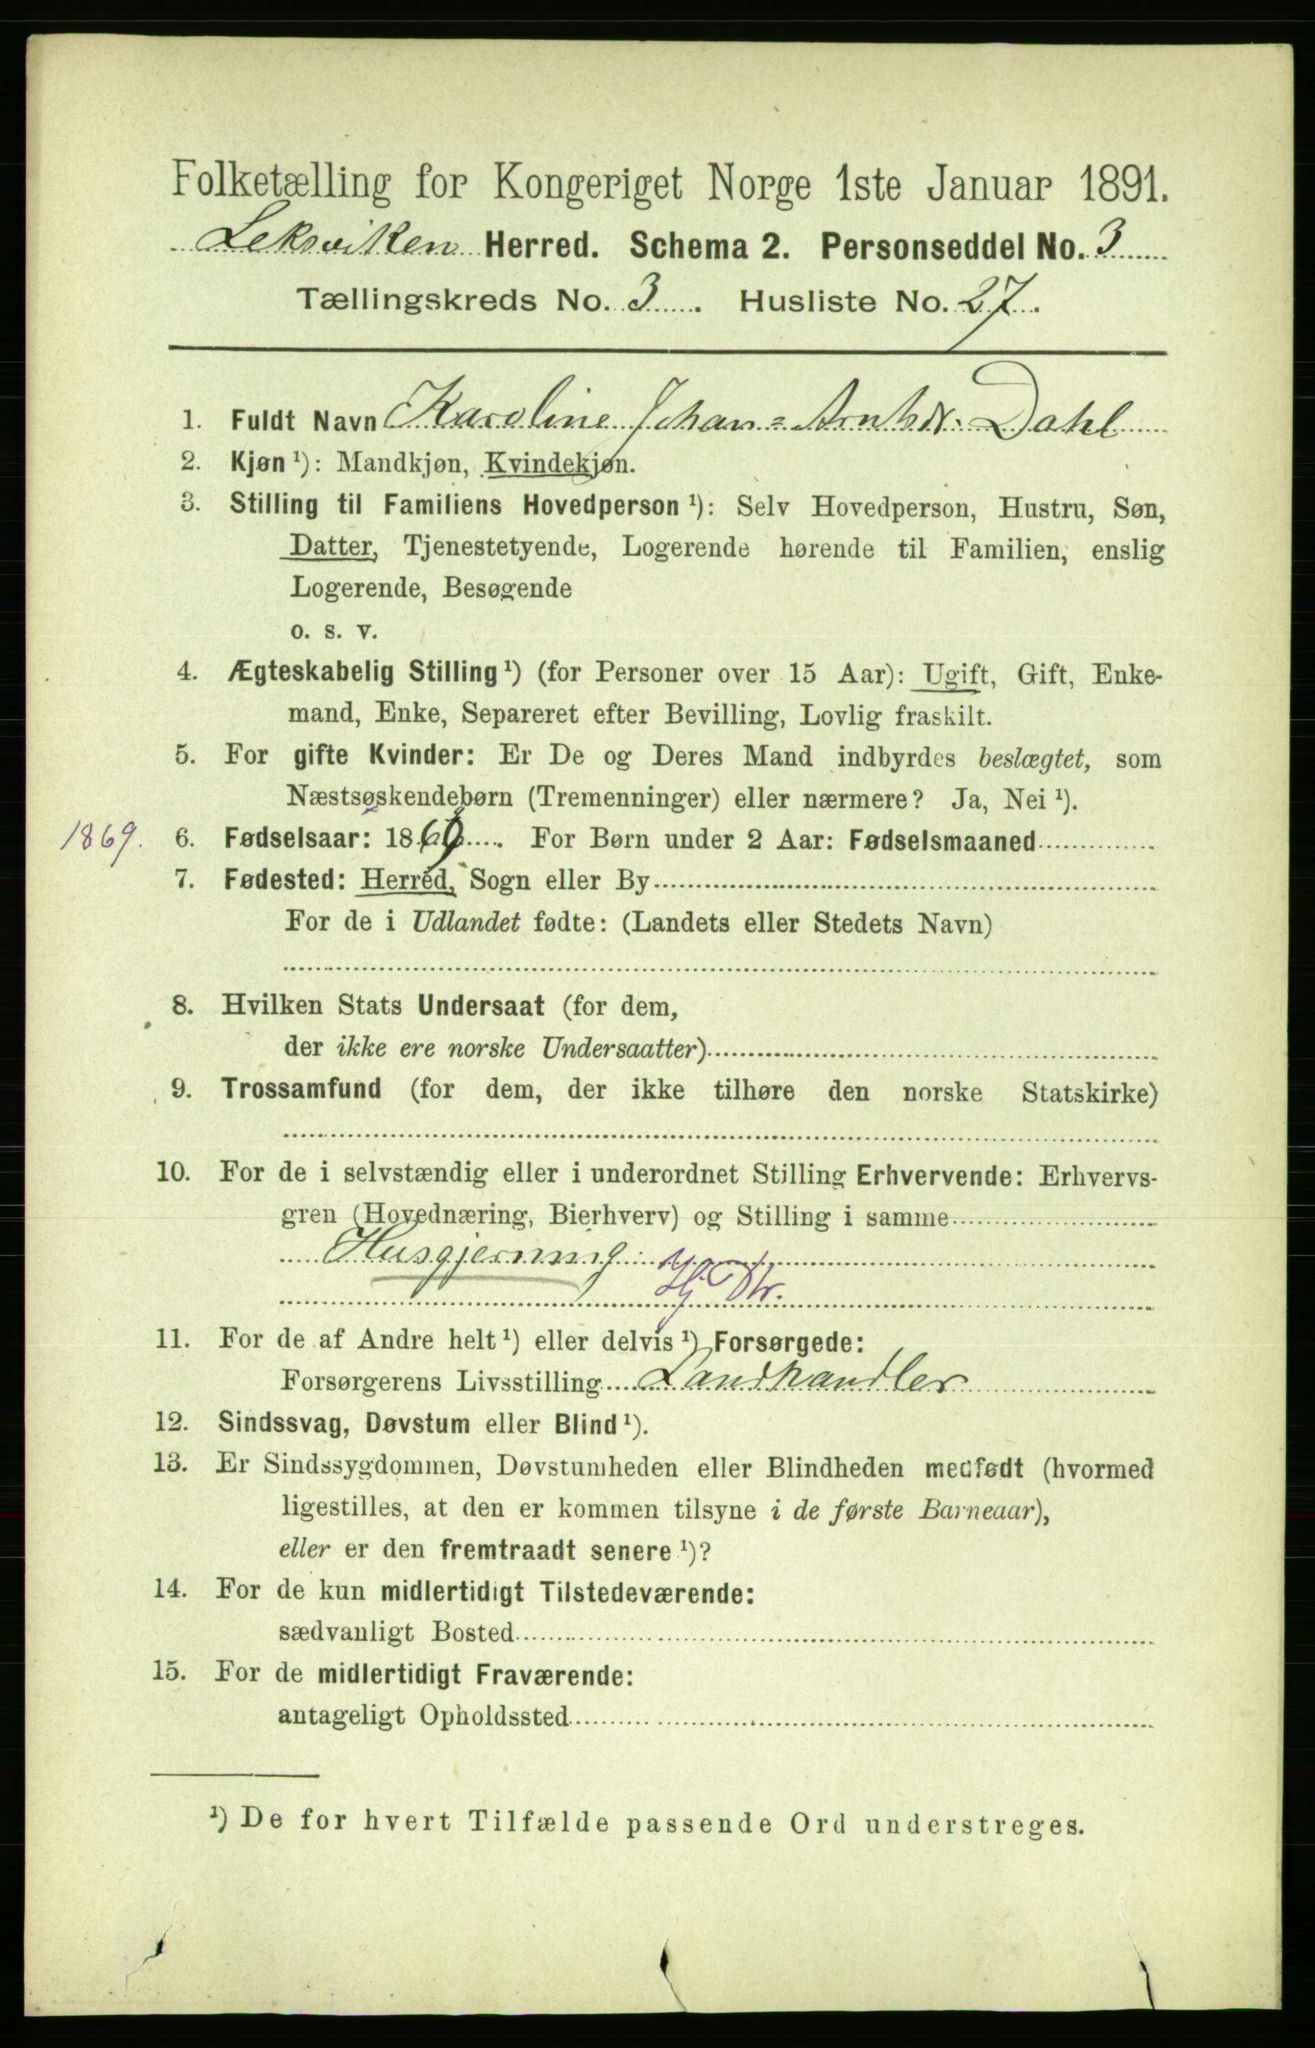 Folketælling for Kongeriget Norge 1ste Januar 1891.
Leksviken Herred. Schema 2. Personseddel No. 3
Tællingskreds No. 3. Husliste No. 27.
1. Fuldt Navn Karoline Johan= Dahl
2. Kjøn ¹): Mandkjøn, Kvindekjøn.
3. Stilling til Familiens Hovedperson ¹): Selv Hovedperson, Hustru, Søn,
Datter, Tjenestetyende, Logerende hørende til Familien, enslig
Logerende, Besøgende
o. s. v.
4. Ægteskabelig Stilling ¹) (for Personer over 15 Aar): Ugift, Gift, Enke-
mand, Enke, Separeret efter Bevilling, Lovlig fraskilt.
5. For gifte Kvinder: Er De og Deres Mand indbyrdes beslægtet, som
Næstsøskendebørn (Tremenninger) eller nærmere? Ja, Nei ¹).
1869. 6. Fødselsaar: 1869. For Børn under 2 Aar: Fødselsmaaned
7. Fødested: Herred, Sogn eller By
For de i Udlandet fødte: (Landets eller Stedets Navn)
8. Hvilken Stats Undersaat (for dem,
der ikke ere norske Undersaatter)
9. Trossamfund (for dem, der ikke tilhøre den norske Statskirke)
10. For de i selvstændig eller i underordnet Stilling Erhvervende: Erhvervs-
gren (Hovednæring, Bierhverv) og Stilling i samme
Husgjerning
11. For de af Andre helt ¹) eller delvis ¹) Forsørgede:
Forsørgerens Livsstilling Landhandler
12. Sindssvag, Døvstum eller Blind ¹).
13. Er Sindssygdommen, Døvstumheden eller Blindheden medfødt (hvormed
ligestilles, at den er kommen tilsyne i de første Barneaar),
eller er den fremtraadt senere ¹)?
14. For de kun midlertidigt Tilstedeværende:
sædvanligt Bosted
15. For de midlertidigt Fraværende:
antageligt Opholdssted
¹) De for hvert Tilfælde passende Ord understreges.